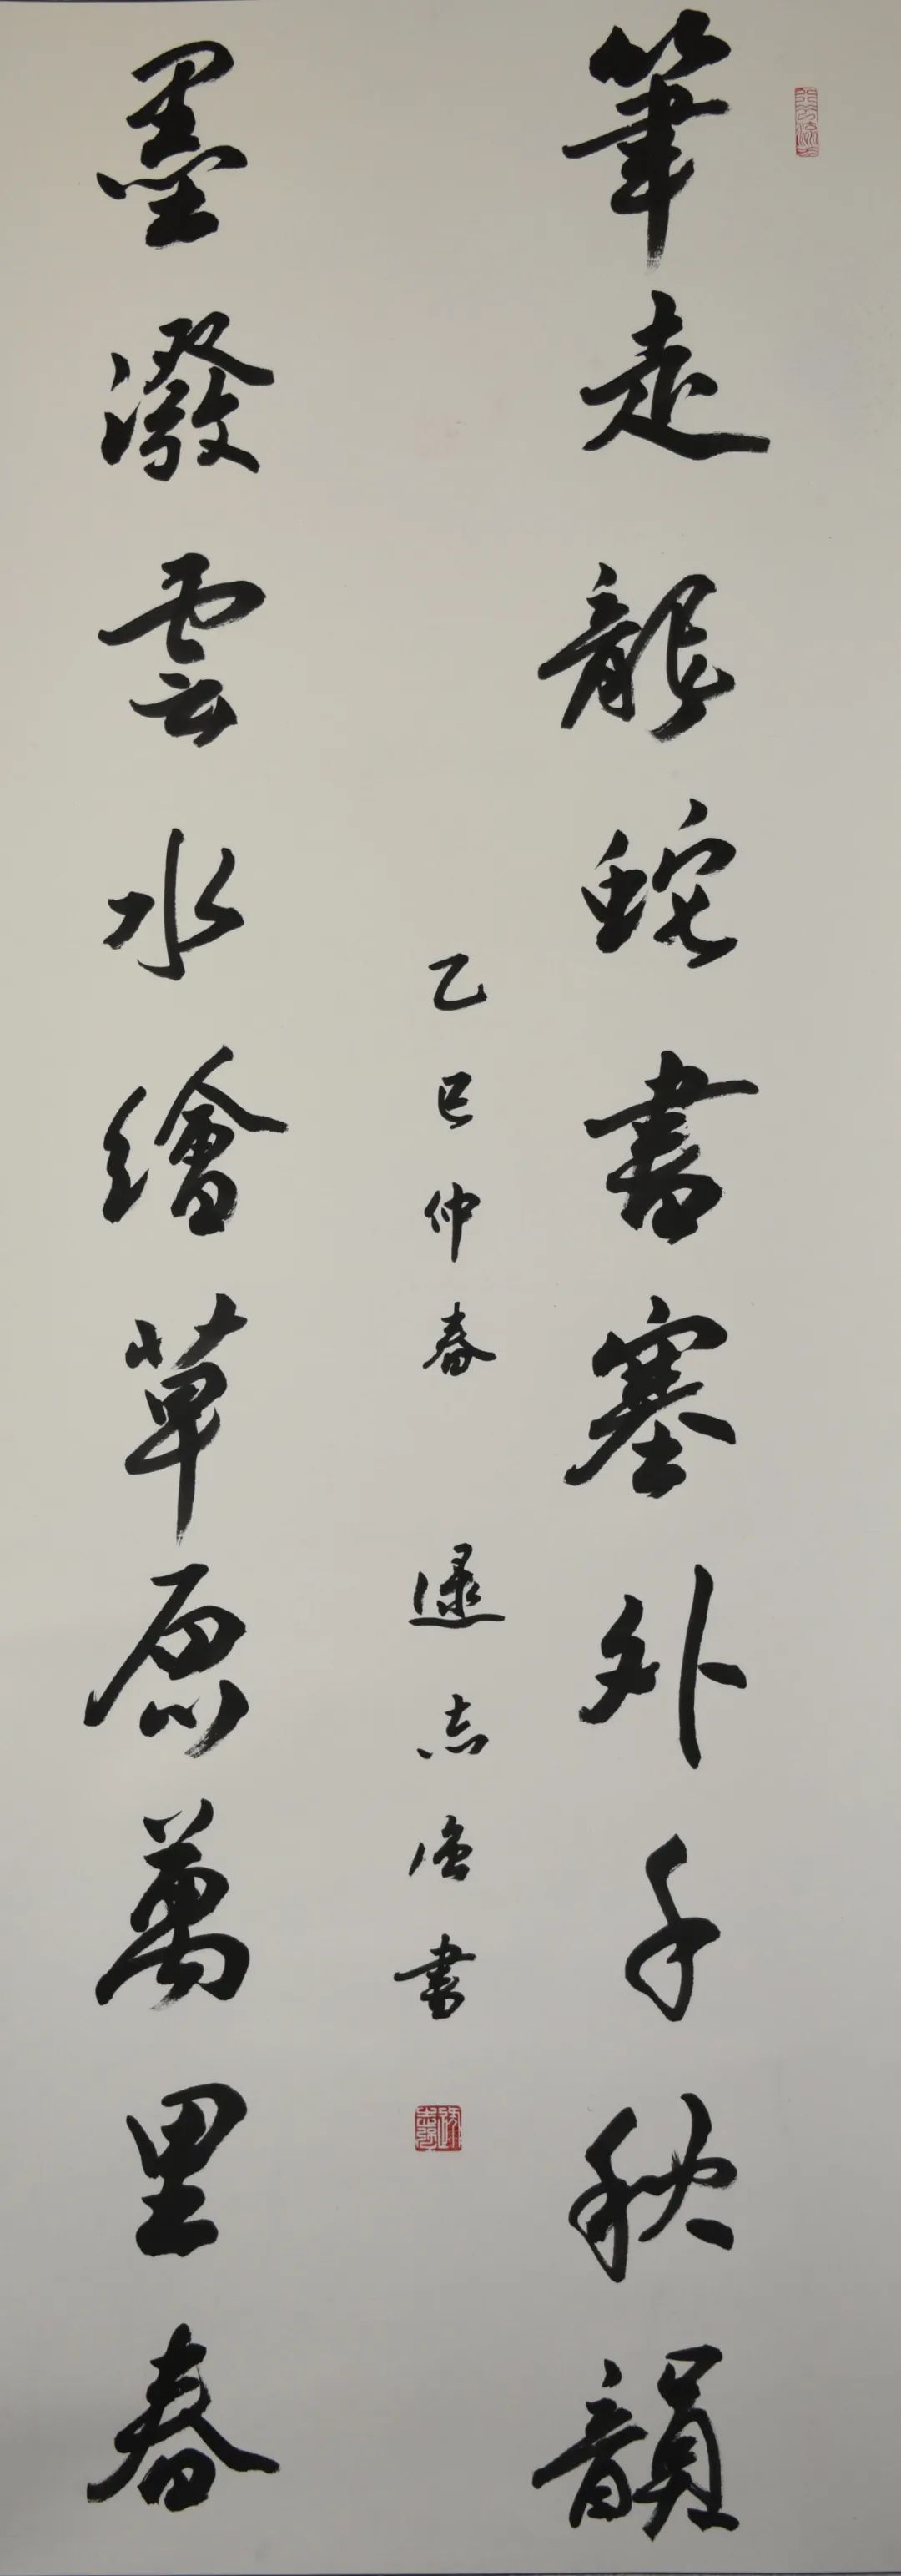 筆走龍蛇書塞外千秋韻
乙巳仲春 逯志强書
墨潑雲水繪草原萬里春